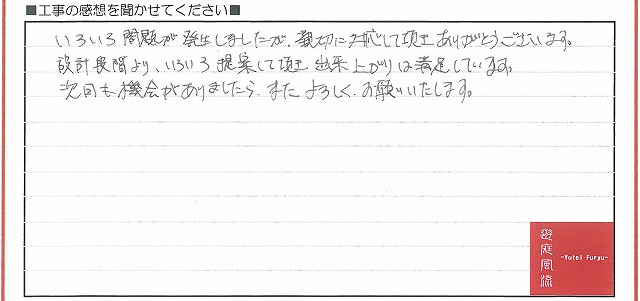 ■工事の感想を聞かせてください■
いろいろ問題が発生しましたが、親切に対応して頂きありがとうございます。
設計段階より、いろいろ提案して頂き出来上がりは満足しています。
次回も機会がありましたら、またよろしくお願いいたします。
遊庭風流
-Yutei Furyu-